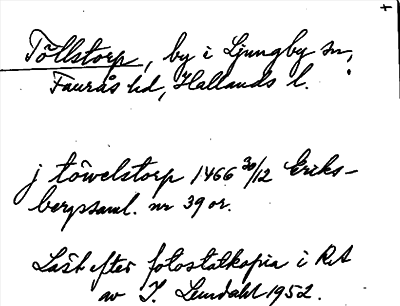 Töllstorp, by i Ljungby sn,
Faurås hd, Hallands l.
j töwelstorp 1466 30/12 Eriks-
bergssaml. nr 39 or.
Läst efter fotostatkopia i RA
av I. Lundahl 1952.